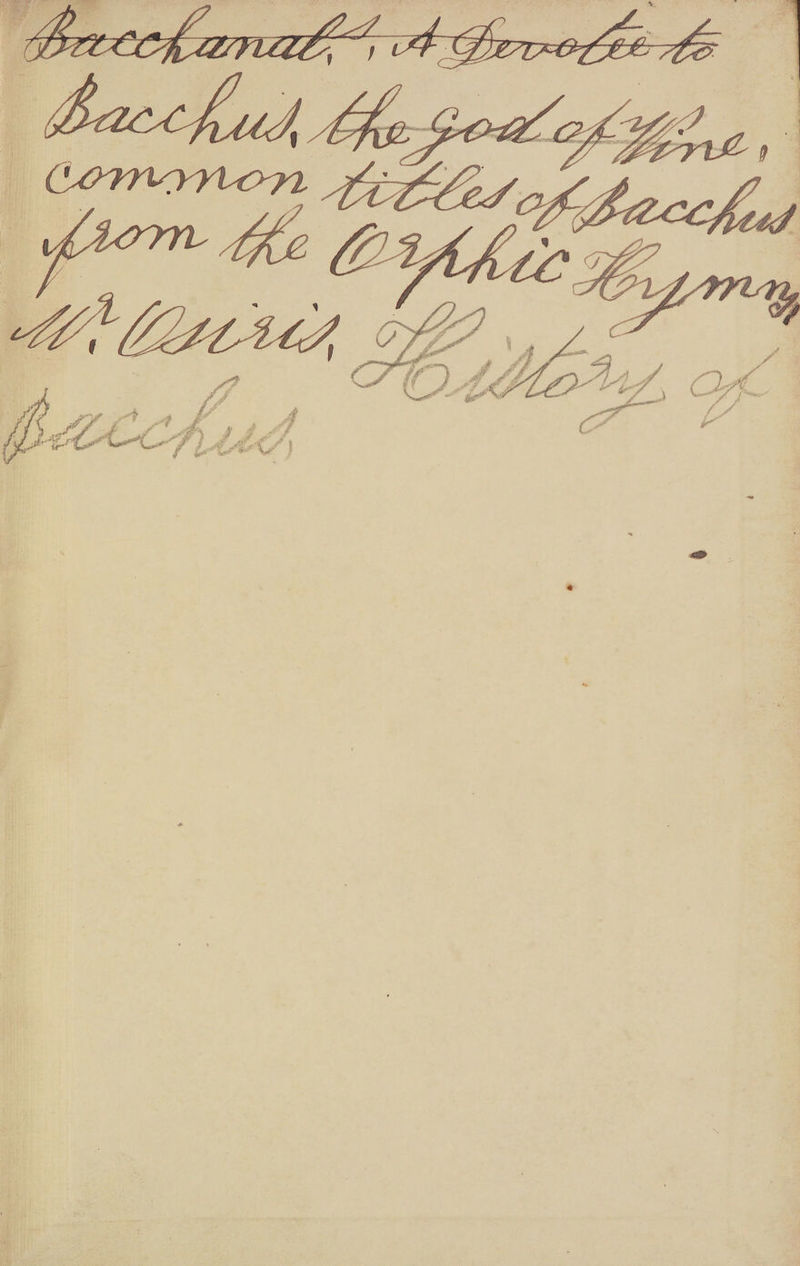 Bacchanal,", A Devotee to
Bacchus, the god of Wine,
common titles of Bacchus
from the Orphic Hymns,
Mr. Osiris, History of
Bacchus,